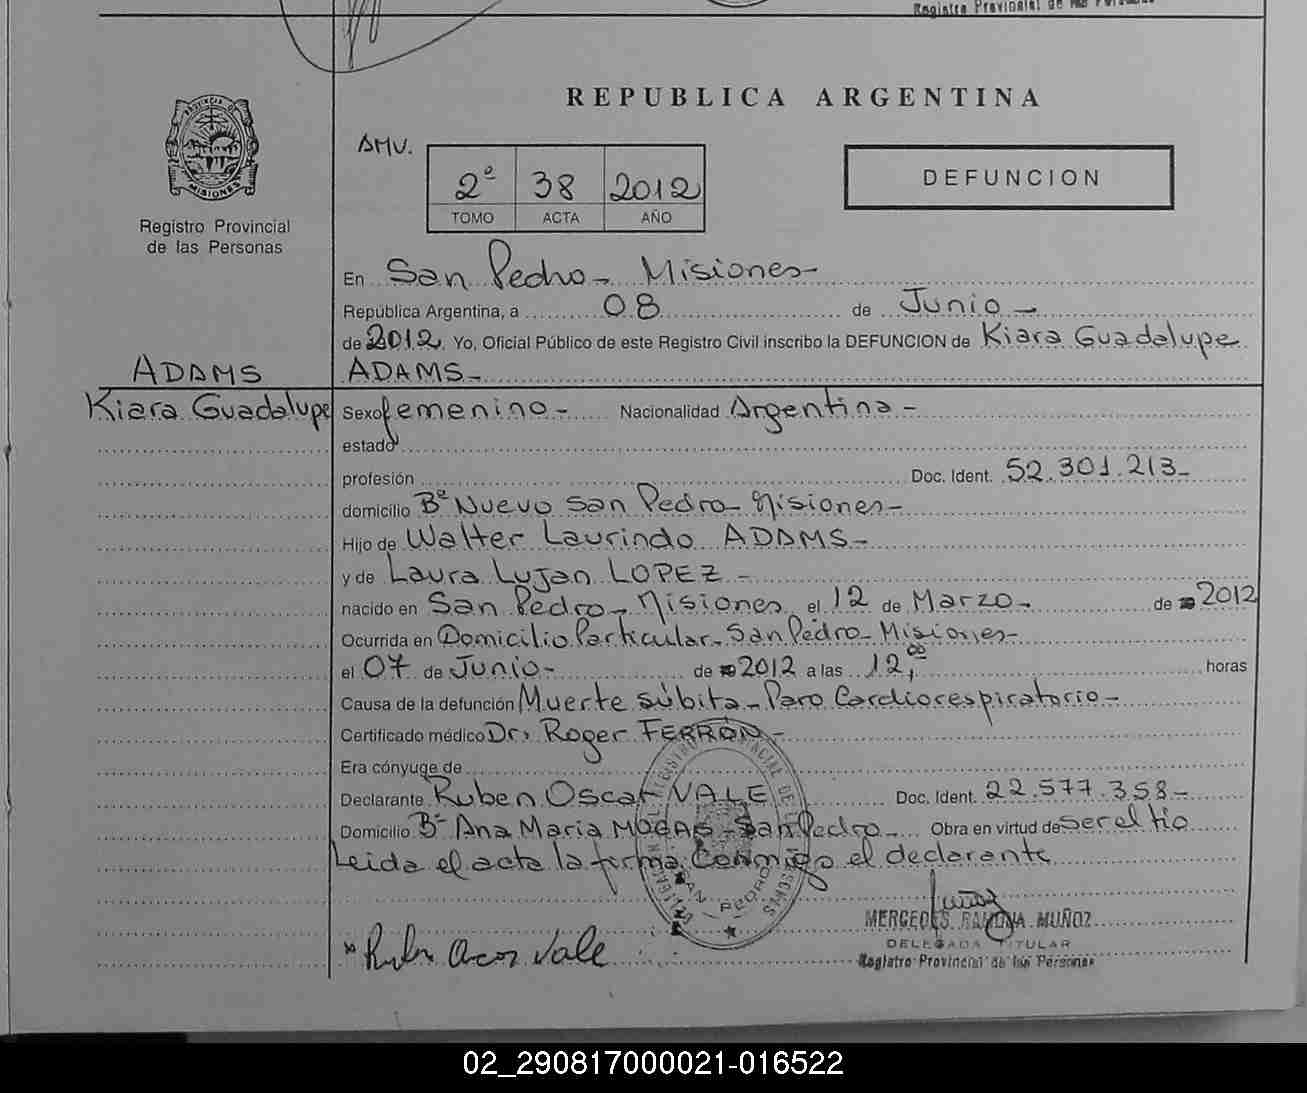 Registro Provincial de las Personas
REPUBLICA ARGENTINA
PROVINCIA DE
MISIONES
Registro Provincial
de las Personas
AMV.
2º 38 2012
TOMO ACTA AÑO
DEFUNCION
En San Pedro - Misiones -
República Argentina, a 08 de Junio -
de 2012. Yo, Oficial Público de este Registro Civil inscribo la DEFUNCION de Kiara Guadalupe
ADAMS ADAMS -
Kiara Guadalupe Sexo femenino - Nacionalidad Argentina -
estado
profesión Doc. Ident. 52.301.213 -
domicilio Bº Nuevo San Pedro - Misiones -
Hijo de Walter Laurindo ADAMS -
y de Laura Lujan LOPEZ -
nacido en San Pedro - Misiones el 12 de Marzo - de 2012
Ocurrida en Domicilio Particular - San Pedro - Misiones -
el 07 de Junio - de 2012 a las 12,00 horas
Causa de la defunción Muerte súbita - Paro Cardiorespiratorio -
Certificado médico Dr. Roger FERRON -
Era cónyuge de
Declarante Ruben Oscar VALE Doc. Ident. 22.577.358 -
Domicilio Bº Ana Maria MOGAS - San Pedro - Obra en virtud de ser el tío
Leida el acta la firma Conmigo el declarante
REGISTRO PROVINCIAL DE LAS PERSONAS
DELEGACION
SAN PEDRO
MERCEDES RAMONA MUÑOZ
DELEGADA TITULAR
Registro Provincial de las Personas
Ruben Oscar Vale
02_290817000021-016522